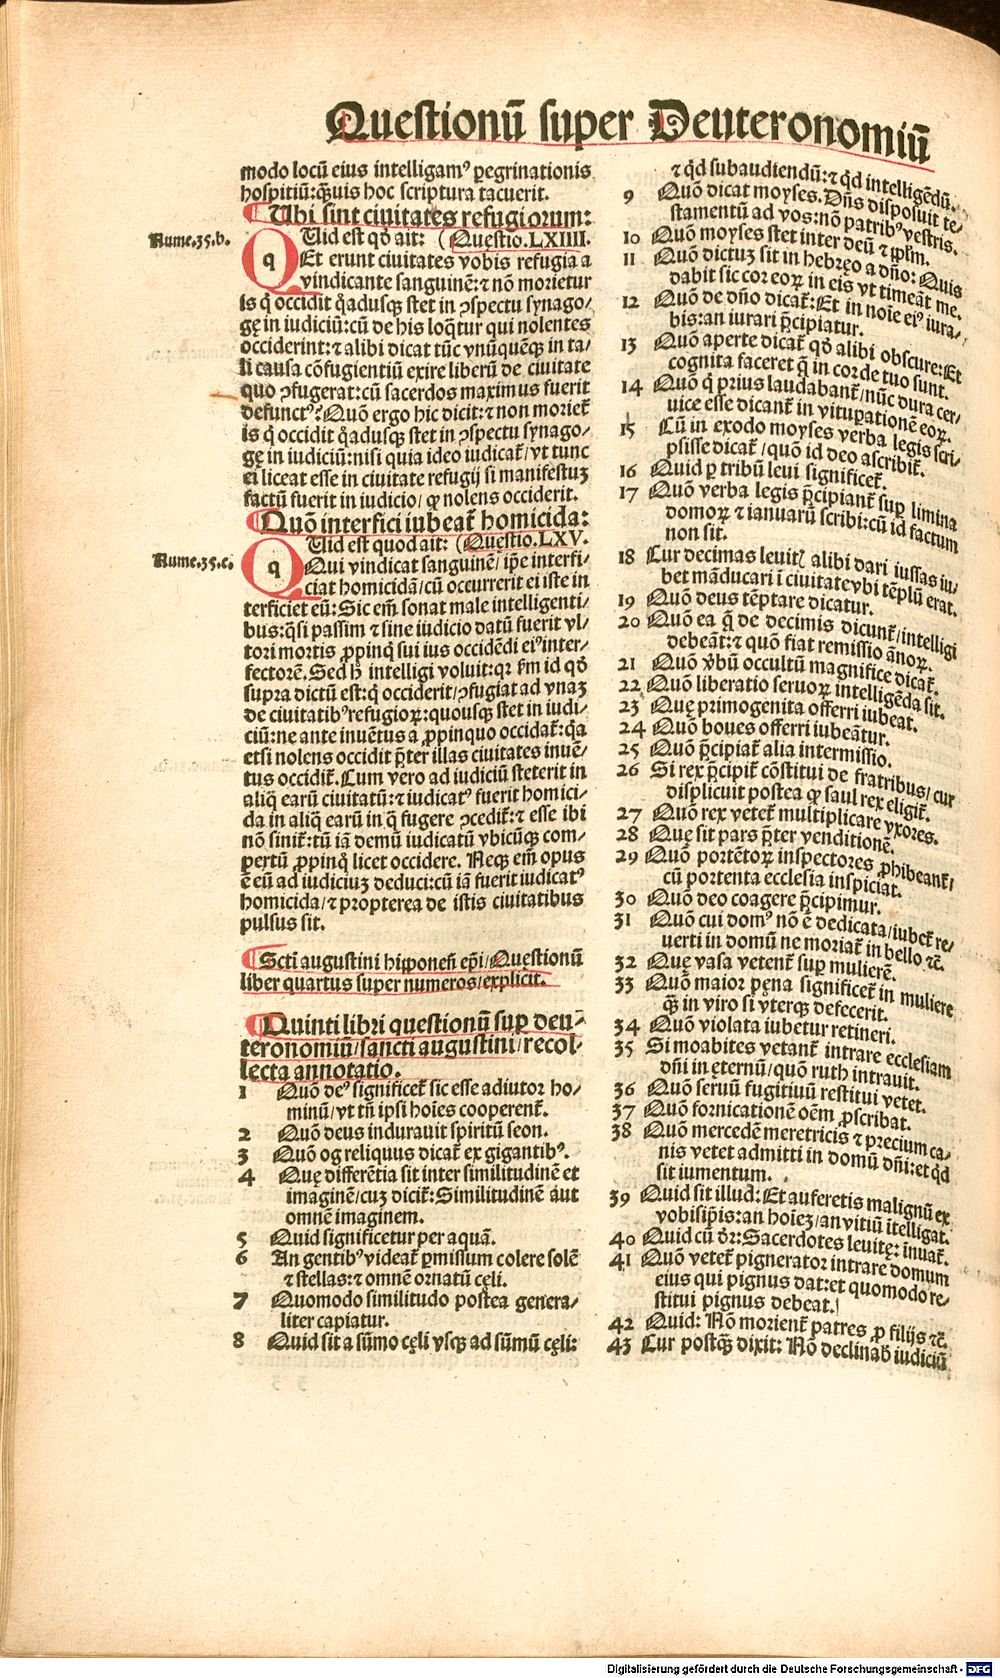 Questionū super Deuteronomiū
modo locū eius intelligamꝰ ꝑegrinationis
hospitiū: ꝙ̃uis hoc scriptura tacuerit.
Ubi sint ciuitates refugiorum:
Nume.35.b.
QUid est qđ ait: (Questio.LXIIII.
Et erunt ciuitates vobis refugia a
vindicante sanguinē: ⁊ nō morietur
is q̇ occidit q̈adusqꝫ stet in ↄspectu synago/
gę in iudiciū: cū de his loq̇tur qui nolentes
occiderint: ⁊ alibi dicat tūc vnūquēqꝫ in ta/
li causa cōfugientiū exire liberū de ciuitate
quo ↄfugerat: cū sacerdos maximus fuerit
defunctꝰ? Quō ergo hic dicit: ⁊ non moriet̃
is q̇ occidit q̈adusqꝫ stet in ↄspectu synago/
gę in iudiciū: nisi quia ideo iudicat̃/ vt tunc
ei liceat esse in ciuitate refugij si manifestuꝫ
factū fuerit in iudicio/ ꝙ nolens occiderit.
Quō interfici iubeat̃ homicida:
Nume.35.c.
QUid est quod ait: (Questio.LXV.
Qui vindicat sanguinē/ ip̄e interfi/
ciat homicidā/ cū occurrerit ei iste in
terficiet eū: Sic em̄ sonat male intelligenti/
bus: q̈si passim ⁊ sine iudicio datū fuerit vl/
tori mortis ꝓpinq̇ sui ius occidēdi eiꝰ inter/
fectorē. Sed h̓ intelligi voluit: qꝛ ẜm id qđ
supra dictū est: q̇ occiderit/ ↄfugiat ad vnaꝫ
de ciuitatibꝰ refugioꝝ: quousqꝫ stet in iudi/
ciū: ne ante inuētus a ꝓpinquo occidat̃: q̈a
etsi nolens occidit p̄ter illas ciuitates inuē/
tus occidit̃. Cum vero ad iudiciū steterit in
aliq̈ earū ciuitatū: ⁊ iudicatꝰ fuerit homici/
da in aliq̈ earū in q̈ fugere ↄcedit̃: ⁊ esse ibi
nō sinit̃: tū iā demū iudicatū vbicūqꝫ com/
pertū ꝓpinq̇ licet occidere. Neqꝫ em̄ opus
ē eū ad iudiciuꝫ deduci: cū iā fuerit iudicatꝰ
homicida/ ⁊ propterea de istis ciuitatibus
pulsus sit.
Sctī augustini hipponen̄ ep̄i/ Questionū
liber quartus super numeros/ explicit.
Quinti libri questionū suꝑ deu-
teronomiū/ sancti augustini/ recol/
lecta annotatio.
1 Quō deꝰ significet̃ sic esse adiutor ho/
minū/ vt tn̄ ipsi hoīes cooperent̃.
2 Quō deus indurauit spiritū seon.
3 Quō og reliquus dicat̃ ex gigantibꝰ.
4 Quę differētia sit inter similitudinē et
imaginē/ cuꝫ dicit̃: Similitudinē aut
omnē imaginem.
5 Quid significetur per aquā.
6 An gentibꝰ videat̃ ꝑmissum colere solē
⁊ stellas: ⁊ omnē ornatū cęli.
7 Quomodo similitudo postea genera/
liter capiatur.
8 Quid sit a sūmo cęli vsqꝫ ad sūmū cęli:
⁊ qđ subaudiendū: ⁊ qđ intelligēdū.
9 Quō dicat moyses. Dn̄s disposuit te/
stamentū ad vos: nō patribꝰ vestris.
10 Quō moyses stet inter deū ⁊ pp̄lm.
11 Quō dictuꝫ sit in hebręo a dn̄o: Quis
dabit sic cor eoꝝ in eis vt timeāt me.
12 Quō de dn̄o dicat̃: Et in noīe eiꝰ iura/
bis: an iurari p̄cipiatur.
13 Quō aperte dicat̃ qđ alibi obscure: Et
cognita faceret q̄ in corde tuo sunt.
14 Quō q̇ prius laudabant̃/ nūc dura cer/
uice esse dicant̃ in vituꝑationē eoꝝ.
15 Cū in exodo moyses verba legis scri/
psisse dicat̃/ quō id deo ascribit̃.
16 Quid ꝑ tribū leui significet̃.
17 Quō verba legis p̄cipiant̃ suꝑ limina
domoꝝ ⁊ ianuarū scribi: cū id factum
non sit.
18 Cur decimas leuitꝭ alibi dari iussas iu/
bet māducari ī ciuitate vbi tēplū erat.
19 Quō deus tēptare dicatur.
20 Quō ea q̄ de decimis dicunt̃/ intelligi
debeāt: ⁊ quō fiat remissio ānoꝝ.
21 Quō v̓bū occultū magnifice dicat̃.
22 Quō liberatio seruoꝝ intelligēda sit.
23 Quę primogenita offerri iubeat.
24 Quō boues offerri iubeātur.
25 Quō p̄cipiat̃ alia intermissio.
26 Si rex p̄cipit̃ cōstitui de fratribus/ cur
displicuit postea ꝙ saul rex eligit̃.
27 Quō rex vetet̃ multiplicare vxores.
28 Que sit pars p̄ter venditionē.
29 Quō portētoꝝ inspectores ꝓhibeant̃/
cū portenta ecclesia inspiciat.
30 Quō deo coagere p̄cipimur.
31 Quō cui domꝰ nō ē dedicata/ iubet̃ re/
uerti in domū ne moriat̃ in bello ⁊c̄.
32 Quę vasa vetent̃ suꝑ mulierē.
33 Quō maior pęna significet̃ in muliere
ꝙ̃ in viro si vterqꝫ defecerit.
34 Quō violata iubetur retineri.
35 Si moabites vetant̃ intrare ecclesiam
dn̄i in ęternū/ quō ruth intrauit.
36 Quō seruū fugitiuū restitui vetet.
37 Quō fornicationē oēm ꝓscribat.
38 Quō mercedē meretricis ⁊ precium ca/
nis vetet admitti in domū dn̄i: et qđ
sit iumentum.
39 Quid sit illud: Et auferetis malignū ex
vobisip̄is: an hoīeꝫ/ an vitiū ītelligat.
40 Quid cū dr̄: Sacerdotes leuitę: inuat̃.
41 Quō vetet̃ pignerator intrare domum
eius qui pignus dat: et quomodo re/
stitui pignus debeat.
42 Quid: Nō morient̃ patres ꝓ filijs ⁊c̄.
43 Cur postqꝫ̃ dixit: Nō declinab̓ iudiciū
Digitalisierung gefördert durch die Deutsche Forschungsgemeinschaft - DFG